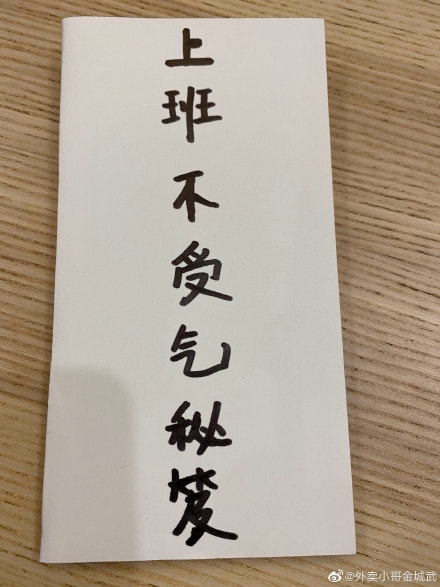 上班不受气秘笈
@外卖小哥金城武